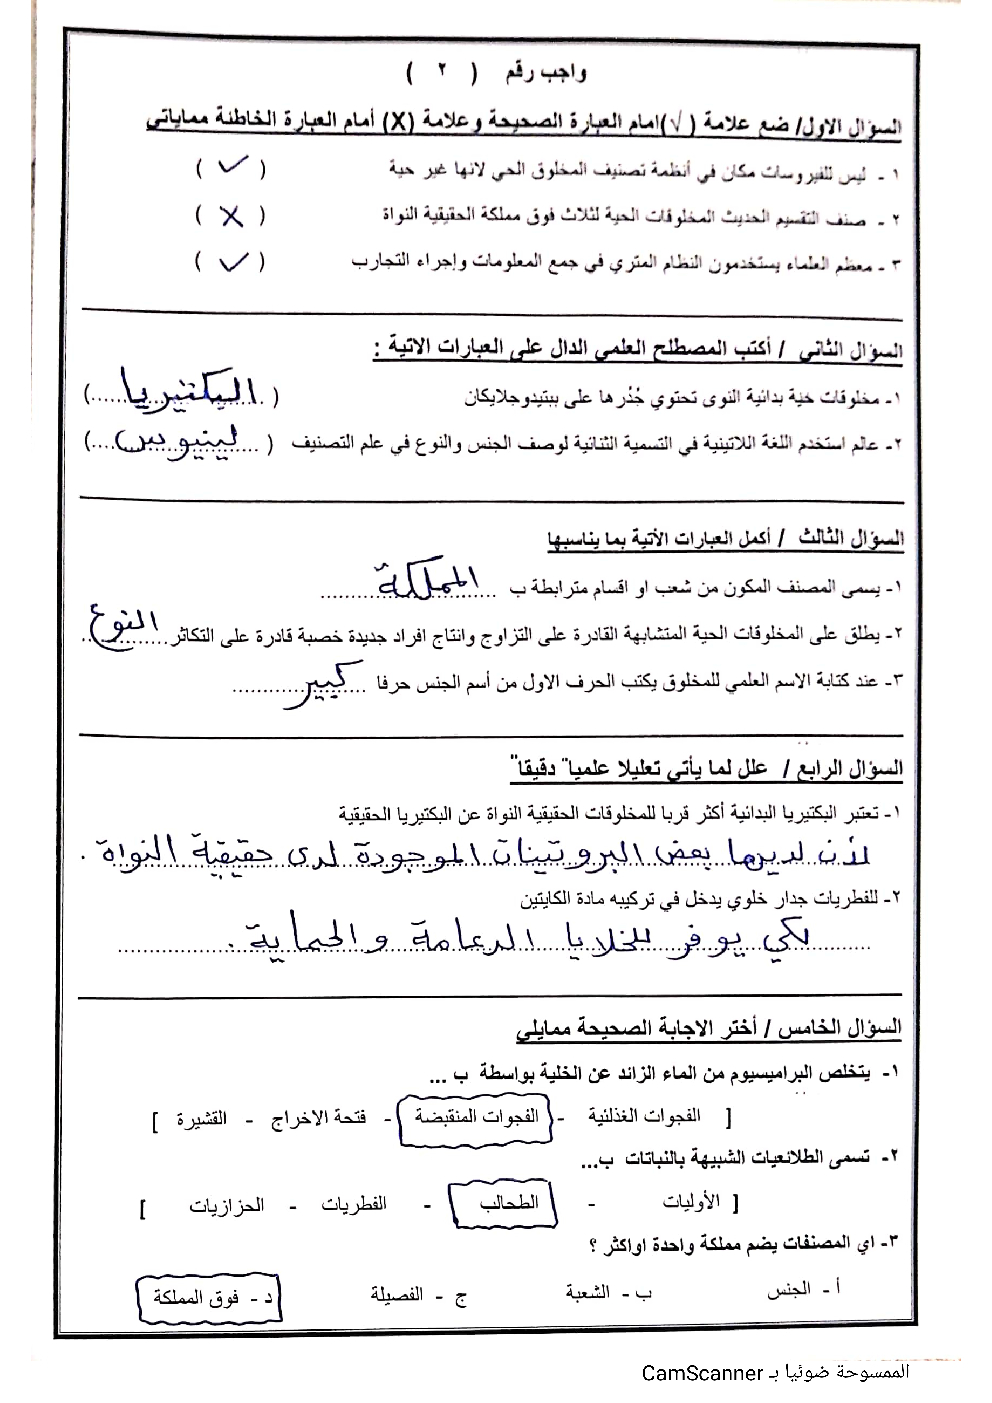 واجب رقم ( ٢ )
السؤال الاول/ ضع علامة (√)امام العبارة الصحيحة وعلامة (X) أمام العبارة الخاطئة مماياتي
١ - ليس للفيروسات مكان في أنظمة تصنيف المخلوق الحي لانها غير حية ( ✓ )
٢ - صنف التقسيم الحديث المخلوقات الحية لثلاث فوق مملكة الحقيقية النواة ( X )
٣ - معظم العلماء يستخدمون النظام المتري في جمع المعلومات وإجراء التجارب ( ✓ )
السؤال الثاني / أكتب المصطلح العلمي الدال على العبارات الاتية :
١- مخلوقات حية بدائية النوى تحتوي جُدُرها على ببتيدوجلايكان ( البكتيريا )
٢- عالم استخدم اللغة اللاتينية في التسمية الثنائية لوصف الجنس والنوع في علم التصنيف ( لينيوس )
السؤال الثالث / أكمل العبارات الأتية بما يناسبها
١- يسمى المصنف المكون من شعب او اقسام مترابطة ب المملكة
٢- يطلق على المخلوقات الحية المتشابهة القادرة على التزاوج وانتاج افراد جديدة خصبة قادرة على التكاثر النوع
٣- عند كتابة الاسم العلمي للمخلوق يكتب الحرف الاول من أسم الجنس حرفا كبير
السؤال الرابع / علل لما يأتي تعليلا علميا" دقيقا"
١- تعتبر البكتيريا البدائية أكثر قربا للمخلوقات الحقيقية النواة عن البكتيريا الحقيقية
لأن لديها بعض البروتينات الموجودة لدى حقيقية النواة .
٢- للفطريات جدار خلوي يدخل في تركيبه مادة الكايتين
لكي يوفر للخلايا الدعامة والحماية .
السؤال الخامس / أختر الاجابة الصحيحة ممايلي
١- يتخلص البراميسيوم من الماء الزائد عن الخلية بواسطة ب ...
[ الفجوات الغذائية - الفجوات المنقبضة - فتحة الاخراج - القشيرة ]
٢- تسمى الطلائعيات الشبيهة بالنباتات ب...
[ الأوليات - الطحالب - الفطريات - الحزازيات ]
٣- اي المصنفات يضم مملكة واحدة اواكثر ؟
أ - الجنس ب - الشعبة ج - الفصيلة د - فوق المملكة
الممسوحة ضوئيا بـ CamScanner